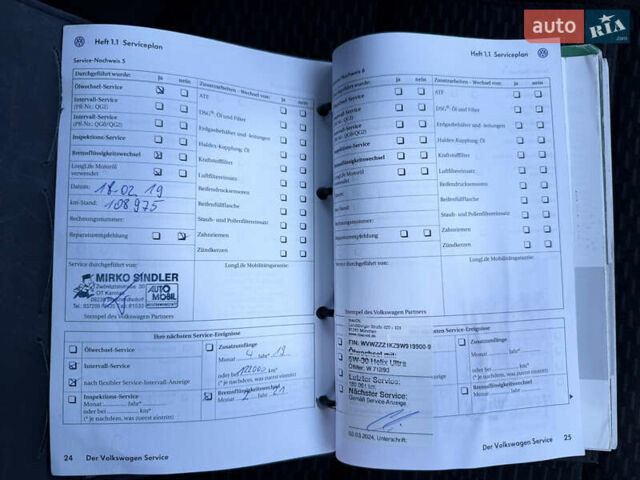 auto RIA .com
Heft 1.1 Serviceplan
Service-Nachweis 5
Durchgeführt wurde: Ja nein Zusatzarbeiten - Wechsel von: Ja nein
Ölwechsel-Service
ATF
Intervall-Service
(PR-Nr.: QG1)
DSG®: Öl und Filter
Intervall-Service
(PR-Nr.: QG0/QG2)
Erdgasbehälter und -leitungen
Inspektions-Service
Haldex-Kupplung: Öl
Bremsflüssigkeitswechsel
Kraftstofffilter
LongLife Motoröl
verwendet
Luftfiltereinsatz
Datum: 18.02.19
Reifendrucksensoren
km-Stand: 108975
Reifenfüllflasche
Rechnungsnummer:
Staub- und Pollenfiltereinsatz
Reparaturempfehlung
Zahnriemen
Zündkerzen
Service durchgeführt von:
LongLife Mobilitätsgarantie:
MIRKO SINDLER
AUTO
MOBIL
Stempel des Volkswagen Partners
Ihre nächsten Service-Ereignisse
Ölwechsel-Service
Intervall-Service
nach flexibler Service-Intervall-Anzeige
Inspektions-Service
Monat Jahr*
oder bei km*
(* je nachdem, was zuerst eintritt)
Zusatzumfänge
Monat 4 Jahr* 19
oder bei 122000 km*
(* je nachdem, was zuerst eintritt)
Bremsflüssigkeitswechsel
Monat 2 Jahr 21
24 Der Volkswagen Service
Heft 1.1 Serviceplan
Service-Nachweis 6
Durchgeführt wurde: Ja nein Zusatzarbeiten - Wechsel von: Ja nein
ATF
DSG®: Öl und Filter
Erdgasbehälter und -leitungen
Haldex-Kupplung: Öl
Kraftstofffilter
Luftfiltereinsatz
Reifendrucksensoren
Reifenfüllflasche
Staub- und Pollenfiltereinsatz
Zahnriemen
Zündkerzen
Bremsflüssigkeitswechsel
LongLife Motoröl
Rechnungsnummer:
Reparaturempfehlung
Service durchgeführt von:
LongLife Mobilitätsgarantie:
Stempel des Volkswagen Partners
Landsberger Straße
München
FIN: WVWZZZ1KZ9W919900-9
Ölwechsel mit:
5W-30 Helix Ultra
Ölfilter: W 712/93
Letzter Service:
Nächster Service:
Gemäß Service-Anzeige
02.03.2024, Unterschrift:
Service-Ereignisse
Zusatzumfänge
Monat Jahr*
oder bei km*
(* je nachdem, was zuerst eintritt)
Bremsflüssigkeitswechsel
Monat Jahr
Der Volkswagen Service 25